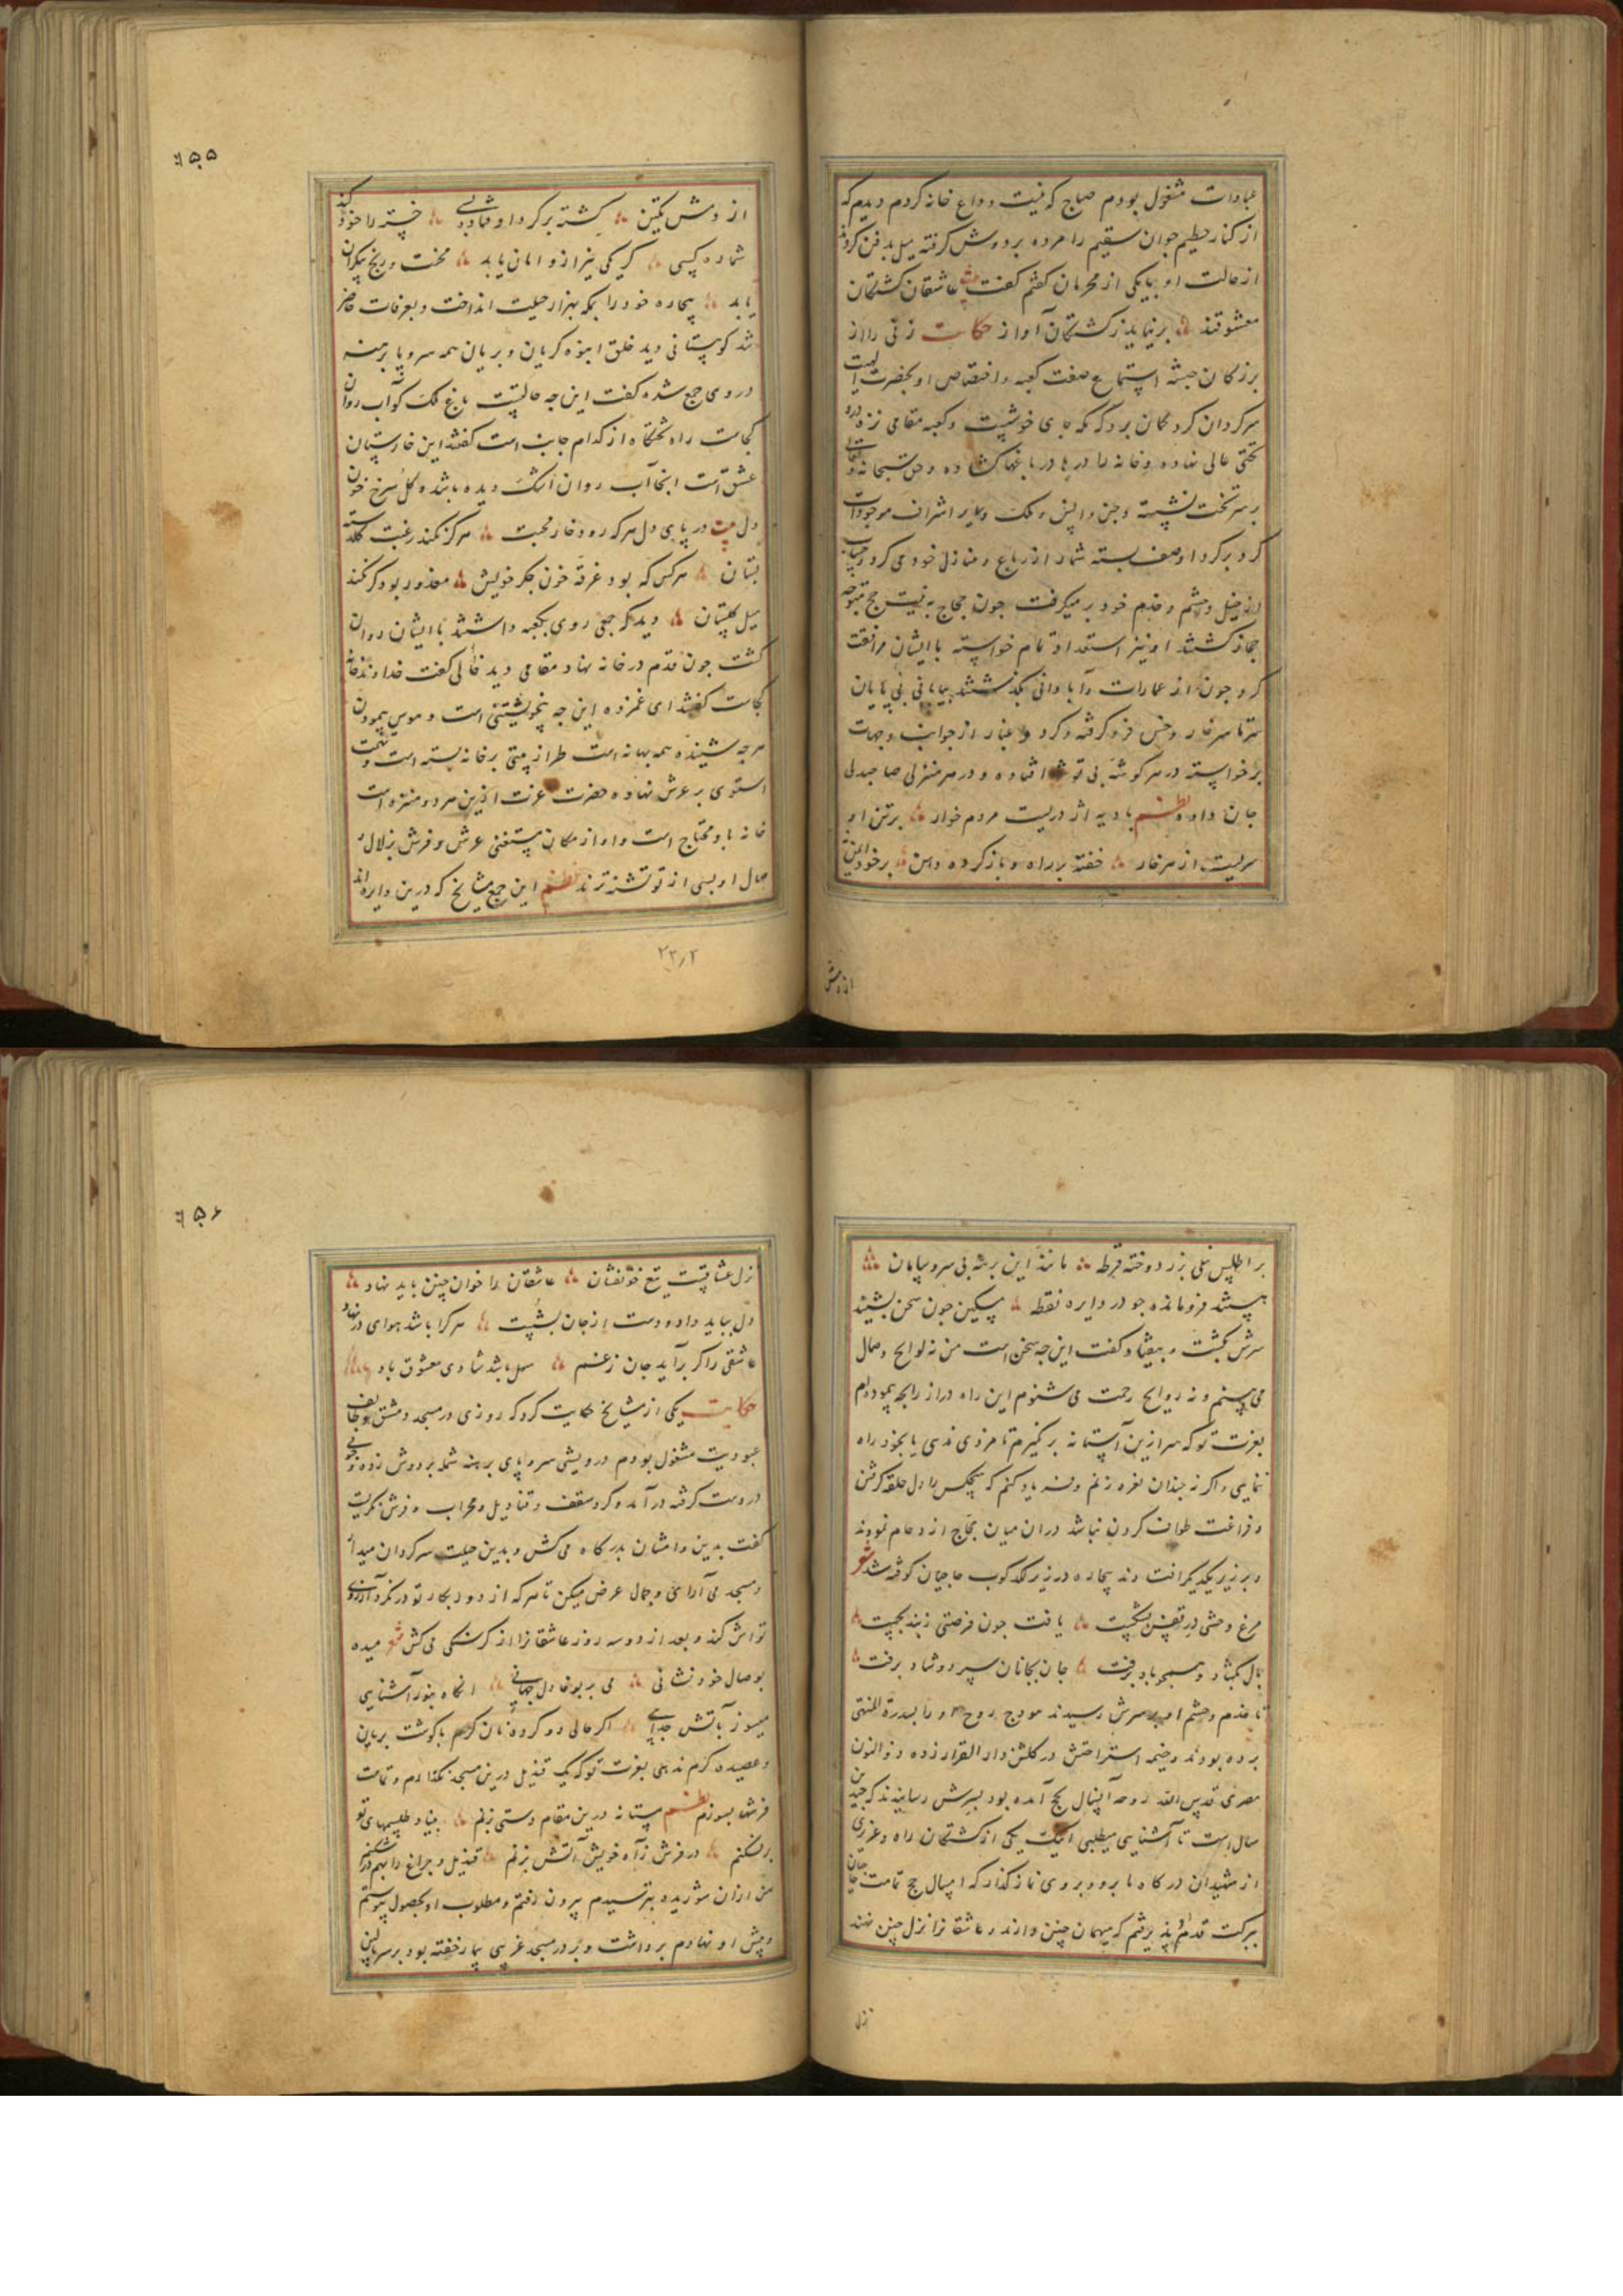 عبادات مشغول بودم صباح که نیت وداع خانه کردم دیدم که
از کنار حطیم جوان سقیم را مرده بر دوش گرفته میل بدفن کردند
از حالت او بیکی از محرمان کفتم کفت عاشقان کشتکان
معشوقند برنیاید ز کشتکان آواز حکایت زنی را از
بزرکان حبشه استماع صفت کعبه و اختصاص او بحضرت الهیت
سرکردان کرد کمان برد که مکه جای خوشیست و کعبه مقامی نزه درو
تختی عالی نهاده و خانه را درها در باغها کشاده و حق سبحانه و تعالی
بر سر تخت نشسته و جن و انس و ملک و سایر اشراف موجودات
کرد بر کرد او صف بسته شمار از رباع و منازل خود می کرد و حساب
از خیل و حشم و خدم خود بر میکرفت جون حجاج به نیت حج متوجه
حجاز کشتند او نیز استعداد تمام خواسته با ایشان مرافقت
کرد جون از عمارات و آبادانی بگذشتند بیابانی بی پایان
سرتاسر خار و خس فرو کرفته و کرد و غبار از جوانب و جهات
برخواسته در هر کوشه بی توشه افتاده و در هر منزلی صاحبدلی
جان داده نظم بادیه اژدریست مردم خوار بر تن او
سریست از هر خار خفته بر راه و باز کرده دهن بر خود ایمن
از دمش
۲۵۵
از دمش مکین کشته بر کرد او
شمارده کسی کر یکی نیز ازو امان یابد محنت و رنج بیکران
یابد بیجاره خود را بمکه بهزار حیلت انداخت و بعرفات حاضر
شد کوهستانی دید خلق انبوه کریان و بریان همه سر و پا برهنه
در وی جمع شده کفت این جه حالتیست باغ ملک کو آب روان
کجاست راه تختکاه از کدام جانب است کفتند این خارستان
عشق است اینجا آب روان اشک دیده باشد و کل سرخ خون
دل بیت در پای دل هر که رود خار محبت هرکز نکند رغبت کلدسته
بستان هر کس که بود غرقه خون جکر خویش معذور بود کر نکند
میل کلستان دید که جمعی روی بکعبه داشتند با ایشان روان
کشت جون قدم در خانه نهاد مقامی دید خالی کفت خداوند خانه
کجاست کفتند ای غمزده این جه بیخویشتنی است و هوس پیمودن
هر جه شنیده همه بهانه است طراز بیتی بر خانه بسته است و تخت
استوی بر عرش نهاده حضرت عزت ازین هر دو منزه است
خانه باو محتاج است و او از مکان مستغنی عرش و فرش بزلال و
صال او بسی از تو تشنه ترند نظم این جمع مشایخ که درین دایره اند
۲۳٫۲
بر اطلس نیلی بزر دوخته قرطه مانند این برشه بی سر و پایان
هستند فرومانده جو در دایره نقطه مسکین جون سخن بشنید
سرش بکشت و بیفتاد و کفت این جه سخن است من نه لوایح وصال
می بینم و نه روایح رحمت می شنوم این راه دراز را بجه پیموده ام
بعزت تو که سر ازین آستانه بر نکیرم تا مزدی ندهی یا بخود راه
ننمایی و اکر نه جندان نعره زنم و فریاد کنم که هیچکس را دل حلقه کرفتن
و فراغت طواف کردن نباشد دران میان حجاج ازدحام نمودند
و بر زبر یکدیگر افتادند بیجاره در زیر لکدکوب حاجیان کوفته شد شعر
مرغ وحشی در قفس بشکست یافت جون فرصتی ز بند بجست
بال بکشاد و همجو باد برفت جان بجانان سپرد و شاد برفت
تا خدم و حشم او بر سرش رسیدند هودج روح او را بسدرة المنتهی
برده بودند و خیمه استراحتش در کلشن دار القرار زده ذوالنون
مصری قدس الله روحه آن سال بحج آمده بود بسرش رسانیدند که جندین
سال است تا آشنایی میطلبی اینک یکی از کشتکان راه و عزیزی
از شهیدان درکاه ما برو و بروی نماز کذار که امسال حج تمامت حاجیان
ببرکت قدم او پذیرفتم که میهمان چنین دارند و عاشقانرا نزل چنین نهند
نزل
۲۵۶
نزل عشاقست تیغ خونفشان عاشقان را خوان چنین باید نهاد
دل بباید داد و دست از جان بشست هر کرا باشد هوای در نهاد
عاشقی را کر برآید جان ز غم سهل باشد شادی معشوق باد
حکایت یکی از مشایخ حکایت کرد که روزی در مسجد دمشق بوظایف
عبودیت مشغول بودم درویشی سر و پای برهنه شمله بر دوش زده و
در دست کرفته در آمد و کرد سقف و قنادیل و محراب و فرش نکریست
کفت بدین دامشان بدرکاه می کش و بدین حیلت سرکردان میدار
و مسجد می آرای و جمال عرض میکن تا هر که از دور بکار تو در نکرد آرزوی
تواش کند و بعد از دو سه روز عاشقانرا از کرسنکی می کش شعر میده
بوصال خود نشانی می بر بوفا دل جهانی آنکاه بنور آشنایی
میسوز بآتش جدایی اکر حالی دو کرده نان کرم با کوشت بریان
و عصیده کرم ندهی بعزت تو که یک قندیل درین مسجد نکذارم و تمامت
فرشها بسوزم نظم مستانه درین مقام دستی بزنم بنیاد طلسمهای تو
بر شکنم در فرش ز آه خویش آتش بزنم قندیل و جراغ را بهم در شکنم
من ازان شوریده بترسیدم بیرون رفتم و مطلوب او بحصول پیوستم
و پیش او نهادم برداشت و بر در مسجد غریبی بیمار خفته بود بر سر بالین